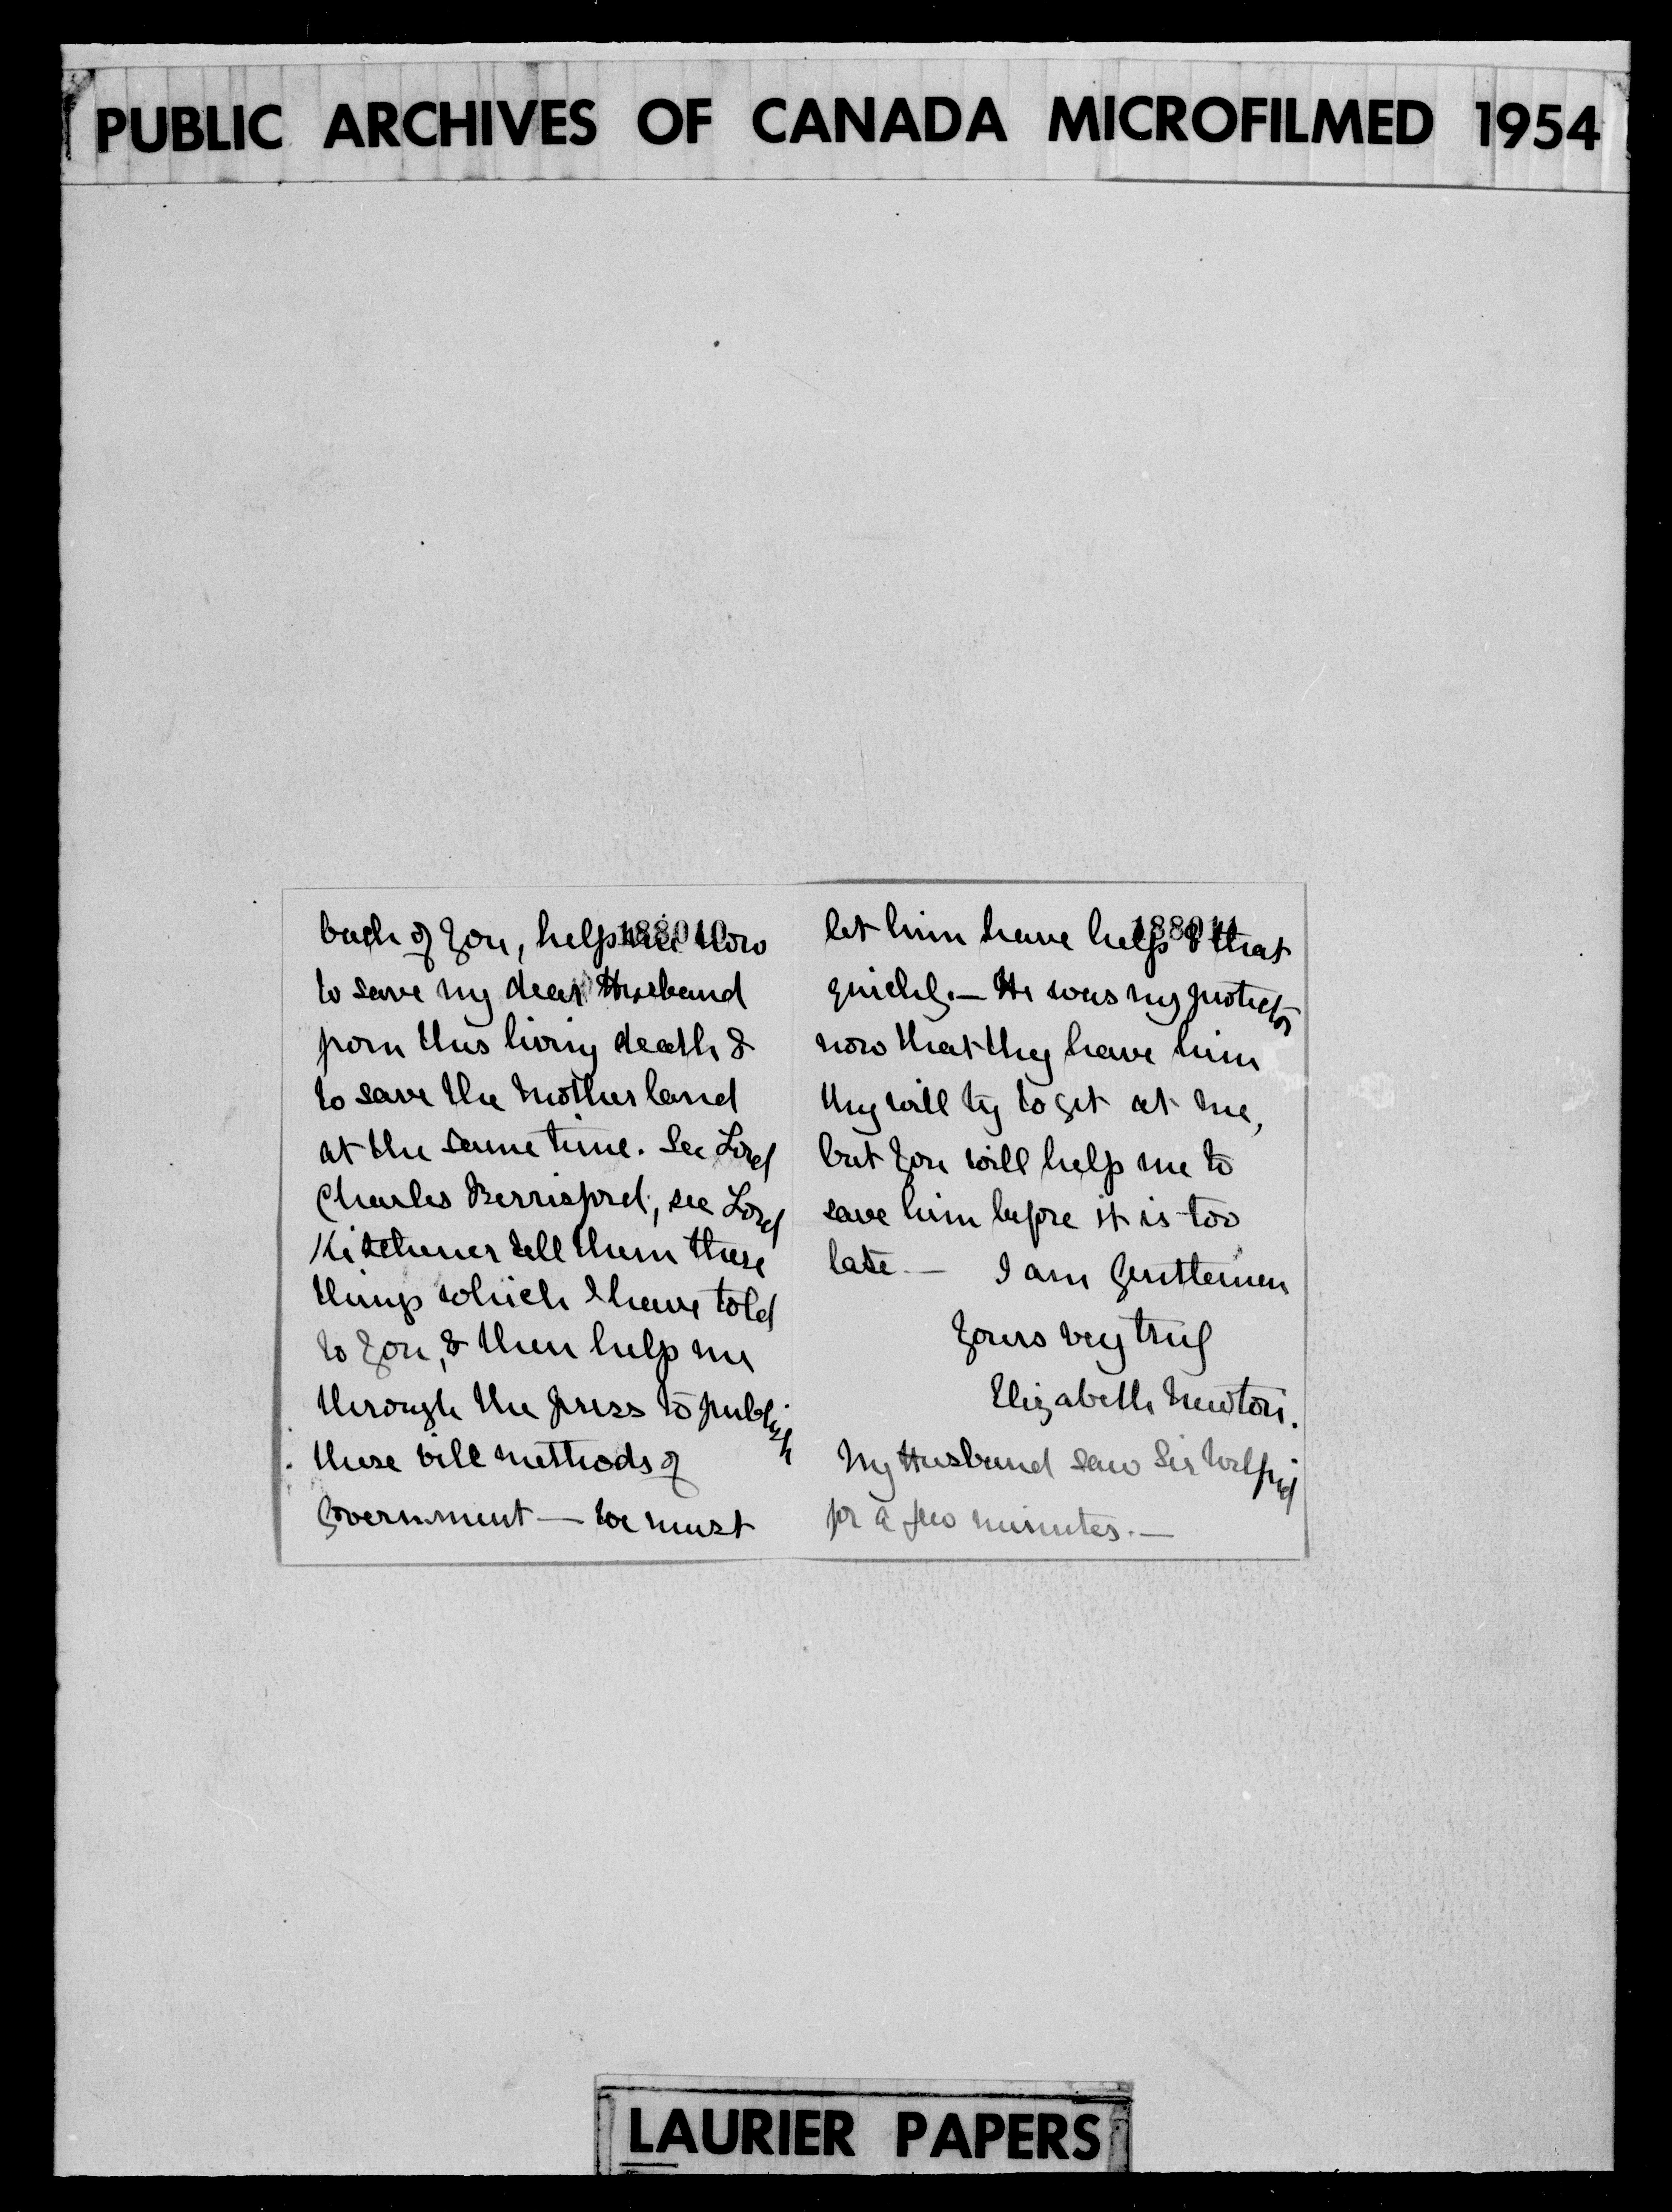 PUBLIC ARCHIVES OF CANADA MICROFILMED 1954
188010
back of you, help me now
to save my dear Husband
from this living death &
to save the Motherland
at the same time. See Lord
Charles Berrisford, see Lord
Kitchener tell them these
things which I have told
to you, & then help me
through the press to publish
these vile methods of
Government — we must
188011
let him have help & that
quickly. — He was my protector
now that they have him
they will try to get at me,
but you will help me to
save him before it is too
late — I am Gentlemen
Yours very truly
Elizabeth Newton.
My Husband saw Sir Wilfrid
for a few minutes. —
LAURIER PAPERS